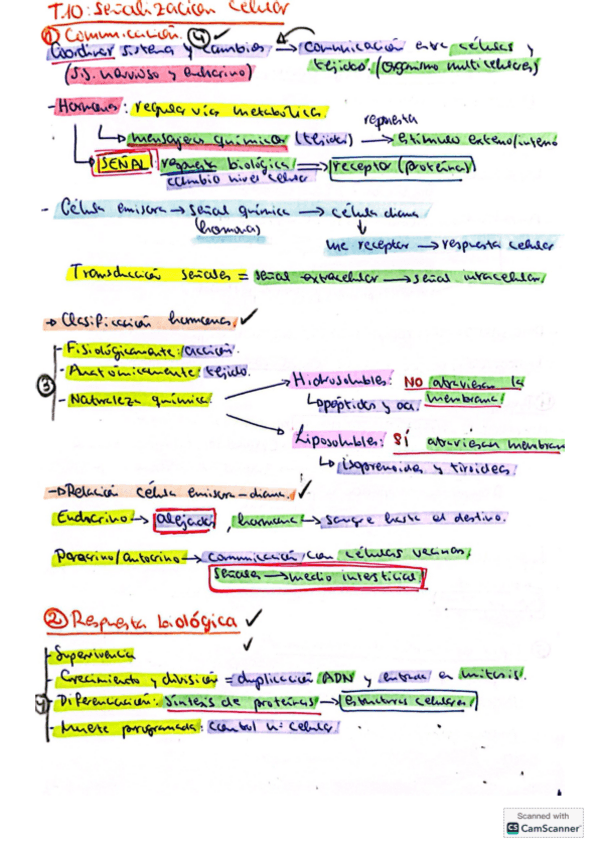 T.10: Señalización Celular
① Comunicación. ④ ✓
Coordinar sistema y cambios → comunicación entre células y
(SS. nervioso y endocrino) tejidos. (organismo multicelulares)
- Hormonas: regular vías metabólicas.
respuesta
↳ mensajeros químicos (tejidos) → estímulo externo/interno
↳ SEÑAL: respuesta biológica/ ⇒ receptor (proteínas)
cambio nivel celular
- Célula emisora → señal química → célula diana
(hormonas) ↓
une receptor → respuesta celular
Transducción señales = señal extracelular → señal intracelular
→ Clasificación hormonas. ✓
- Fisiológicamente: acción.
③ - Anatómicamente: tejido.
- Naturaleza química.
Hidrosolubles: NO atraviesan la
↳ péptidos y aa. membrana
Liposolubles: SÍ atraviesan membran
↳ isoprenoides y tiroideas
→ Relación célula emisora-diana. ✓
Endocrino → alejada, hormona → sangre hasta el destino.
Paracrino/autocrino → comunicación con células vecinas
Señales → medio intersticial
② Respuesta biológica ✓
✓
- Supervivencia
- Crecimiento y división = duplicación ADN y entrada en mitosis.
4 - Diferenciación: síntesis de proteínas → estructuras celulares
- Muerte programada: control nº celular
Scanned with
CS CamScanner